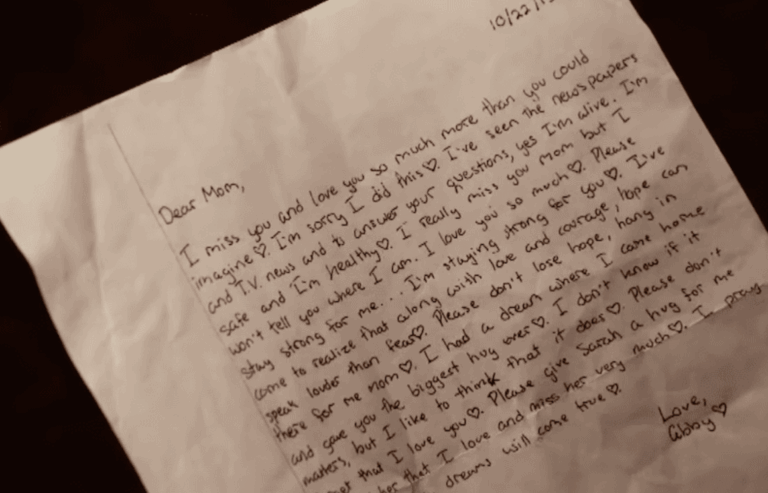 10/22/1
Dear Mom,
I miss you and love you so much more than you could
imagine♡. I'm sorry I did this♡. I've seen the newspapers
and T.V. news and to answer your questions, yes I'm alive. I'm
safe and I'm healthy♡. I really miss you mom but I
won't tell you where I am. I love you so much♡. Please
stay strong for me... I'm staying strong for you♡. I've
come to realize that along wish love and courage, hope can
speak louder than fear♡. Please don't lose hope, hang in
there for me mom♡. I had a dream where I came home
and gave you the biggest hug ever♡. I don't know if it
matters, but I like to think that it does♡. Please don't
that I love you♡. Please give Sarah a hug for me
her that I love and miss her very much♡. I pray
dreams will come true♡.
Love,
Abby♡